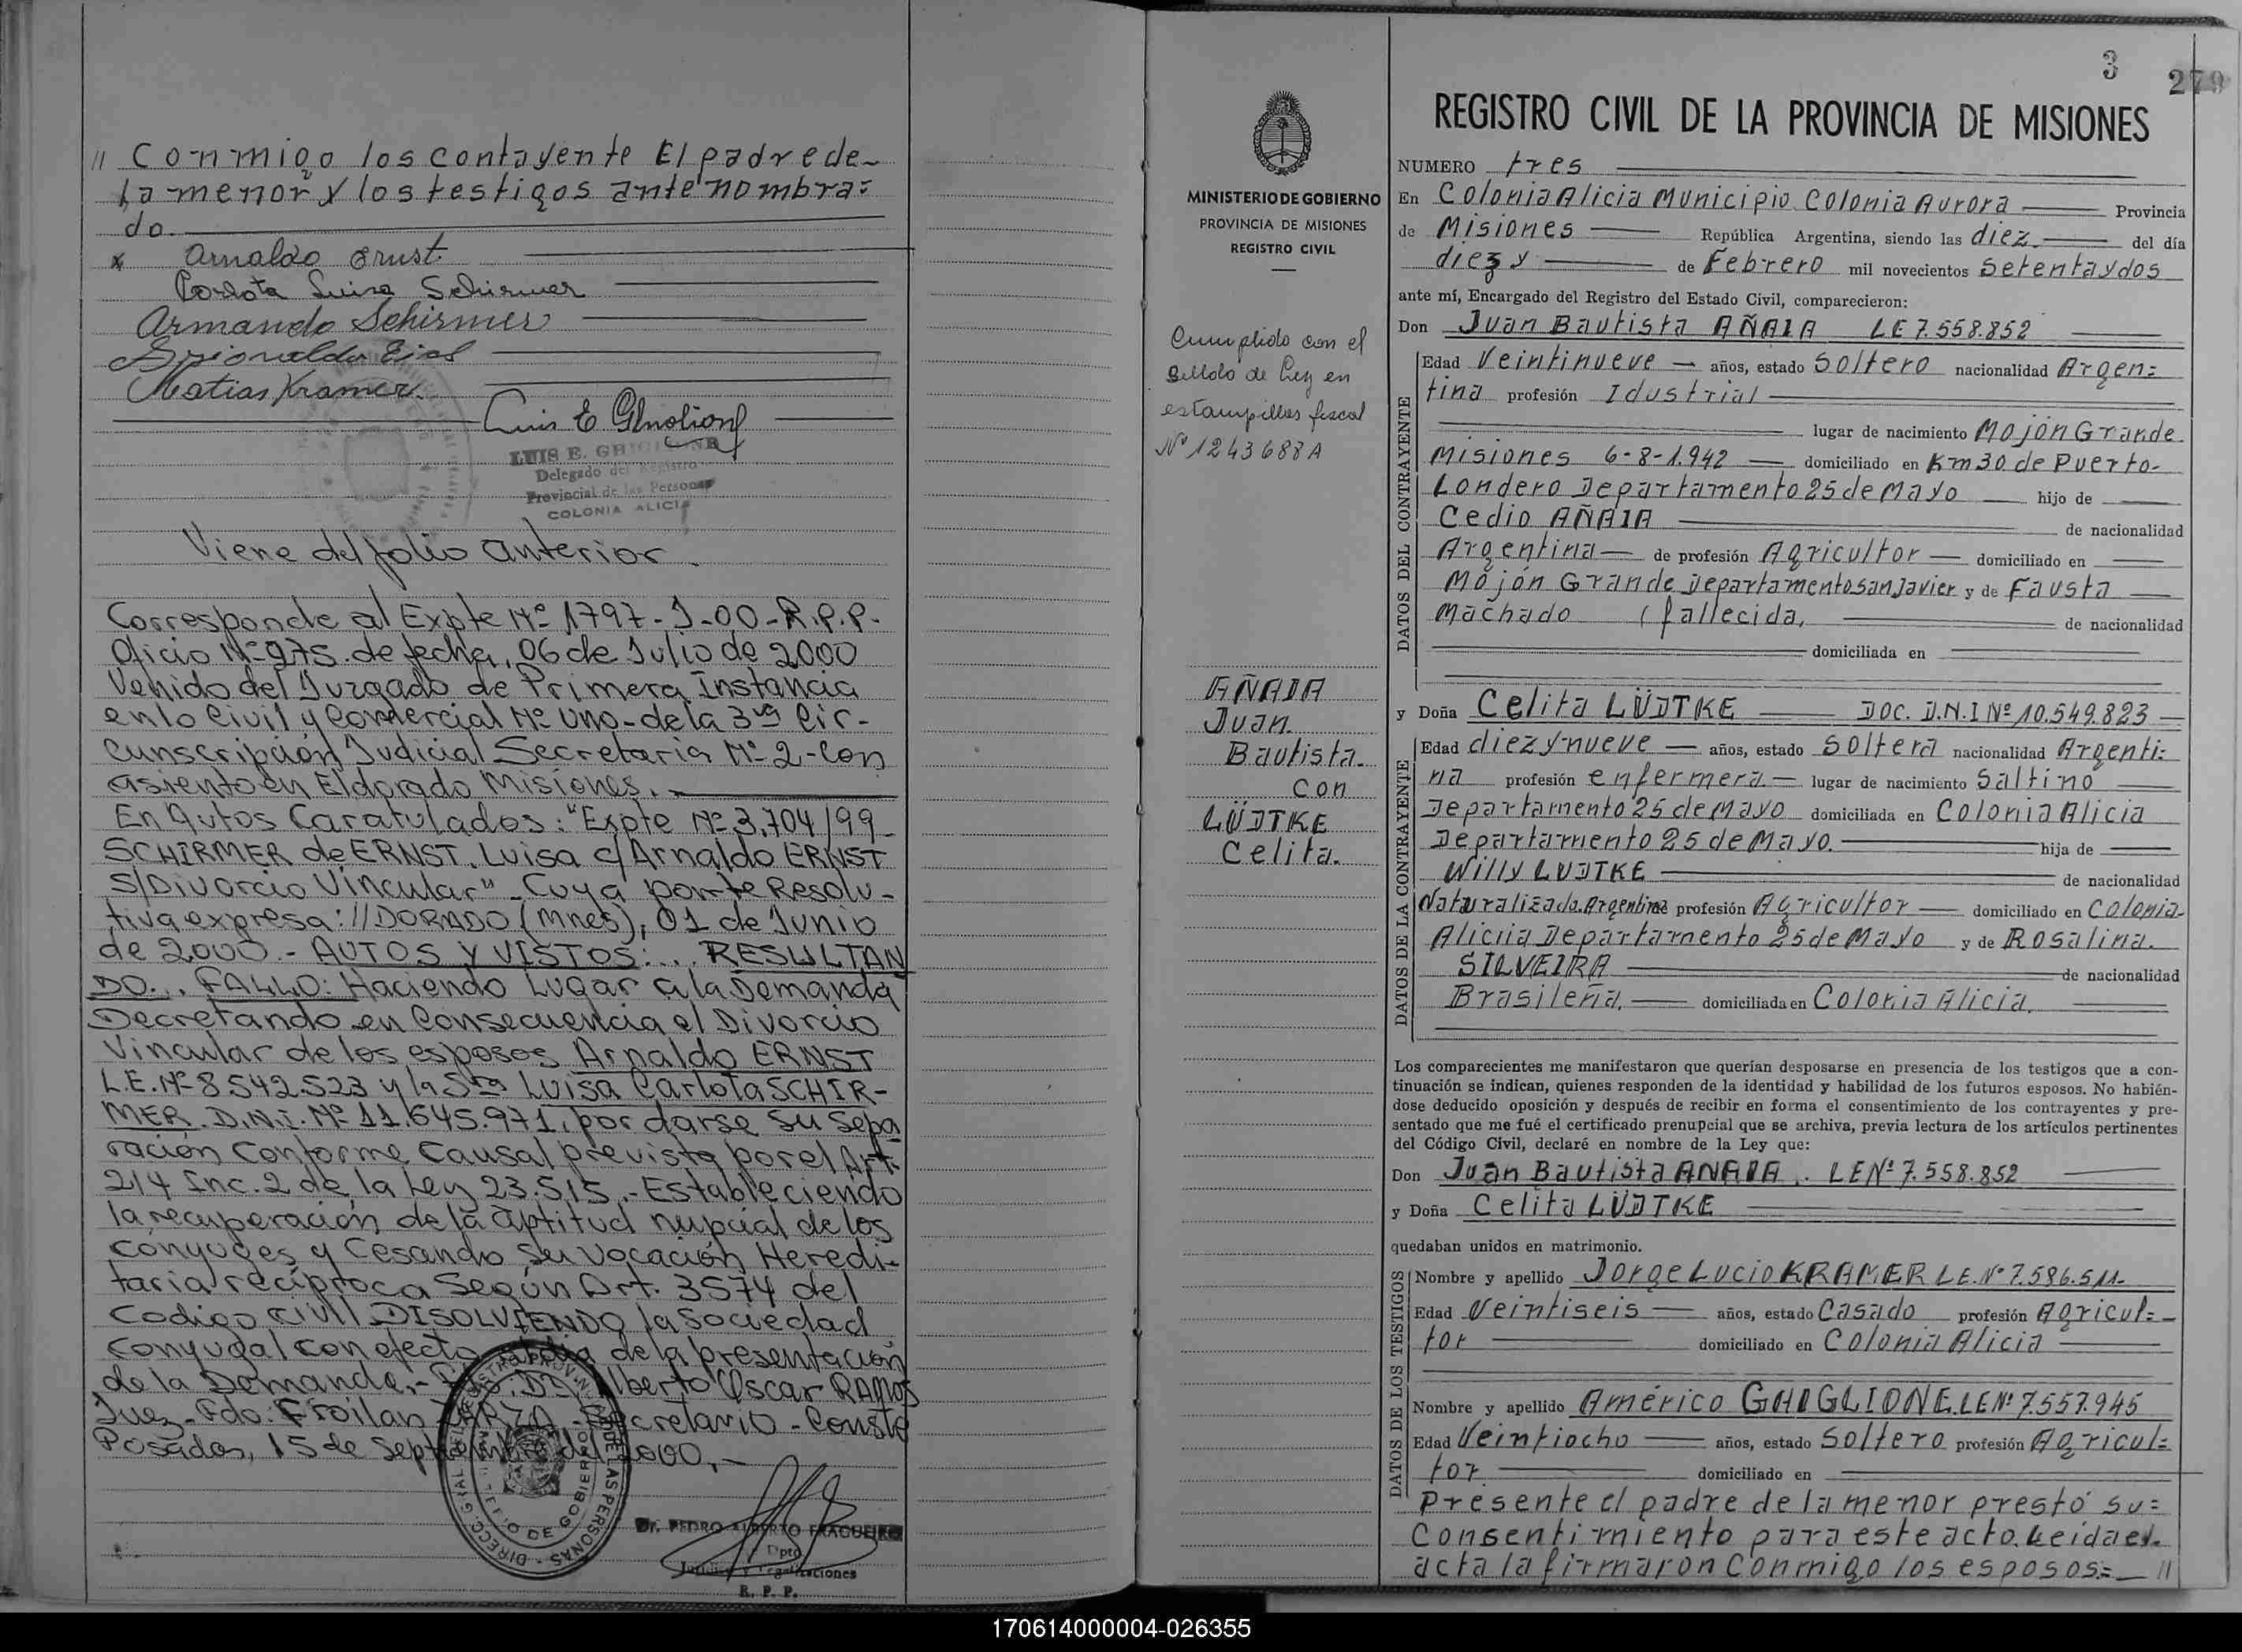 // Conmigo los contayente El padre de-
la menor y los testigos ante nombra=
do.
x Arnaldo Ernst.
Carlota Luisa Schirmer
Armando Schirmer
Matias Kramer.
LUIS E. GHIGLIONE
Delegado del Registro
Provincial de las Personas
COLONIA ALICIA
Viene del folio anterior.
Corresponde al Expte Nº 1797-J-00-R.P.P.-
Oficio Nº 975. de fecha, 06 de Julio de 2000
Venido del Juzgado de Primera Instancia
en lo Civil y Comercial Nº Uno-de la 3ra Cir-
cunscripción Judicial Secretaria Nº 2-Con
asiento en Eldorado Misiones.-
En Autos Caratulados: "Expte Nº 3.704/99-
SCHIRMER de ERNST. Luisa c/Arnaldo ERNST
S/Divorcio Vincular"- Cuya parte Resolu-
tiva expresa: //DORADO (Mnes), 01 de Junio
de 2000.- AUTOS Y VISTOS:... RESULTAN
DO... FALLO: Haciendo Lugar a la Demanda
Decretando en Consecuencia el Divorcio
Vincular de los esposos Arnaldo ERNST
L.E. Nº 8.542.523 y la Sra Luisa Carlota SCHIR-
MER. D.N.I. Nº 11.645.971, por darse su Sepa
ración Conforme Causal prevista por el Art.
214 Inc. 2 de la Ley 23.515.- Estableciendo
la recuperación de la aptitud nupcial de los
cónyuges y Cesando su Vocación Heredi-
taria recíproca Según Art. 3574 del
Codigo CIVIL DISOLVIENDO la Sociedad
Conyugal con efecto al día de la presentación
de la Demanda.- Fdo. DR. Alberto Oscar RAMOS
Juez- Fdo. Froilan ZARZA - Secretario - Conste
Posadas, 15 de Septiembre del 2000,-
DIRECC. GRAL. DEL REGISTRO PROVINCIAL DE LAS PERSONAS
DE GOBIERNO
Dr. PEDRO ALBERTO FRAGUEIRO
Dpto
R. P. P.
3
279
REGISTRO CIVIL DE LA PROVINCIA DE MISIONES
MINISTERIO DE GOBIERNO
PROVINCIA DE MISIONES
REGISTRO CIVIL
Cumplido con el
Sellado de Ley en
estampillas fiscal
Nº 1243688A
AÑAIA
Juan.
Bautista.
con
LÜDTKE
Celita.
NUMERO tres
En Colonia Alicia Municipio Colonia Aurora Provincia
de Misiones República Argentina, siendo las diez. del día
diez y de Febrero mil novecientos setenta y dos
ante mí, Encargado del Registro del Estado Civil, comparecieron:
Don Juan Bautista AÑAIA LE 7.558.852
DATOS DEL CONTRAYENTE
Edad Veintinueve años, estado soltero nacionalidad Argen=
tina profesión Idustrial
lugar de nacimiento Mojón Grande
Misiones 6-8-1.942 domiciliado en Km 30 de Puerto-
Londero Departamento 25 de Mayo hijo de
Cedio AÑAIA de nacionalidad
Argentina de profesión Agricultor domiciliado en
Mojón Grande Departamento San Javier y de Fausta
Machado (fallecida, de nacionalidad
domiciliada en
y Doña Celita LÜDTKE DOC. D.N.I Nº 10.549.823
DATOS DE LA CONTRAYENTE
Edad diez y nueve años, estado soltera nacionalidad Argenti=
na profesión enfermera. lugar de nacimiento Saltino
Departamento 25 de Mayo domiciliada en Colonia Alicia
Departamento 25 de Mayo. hija de
Willy LUDTKE de nacionalidad
Naturalizado. Argentina profesión Agricultor domiciliado en Colonia-
Aliciia Departamento 25 de Mayo y de Rosalina.
SILVEIRA de nacionalidad
Brasileña. domiciliada en Colonia Alicia.
Los comparecientes me manifestaron que querían desposarse en presencia de los testigos que a con-
tinuación se indican, quienes responden de la identidad y habilidad de los futuros esposos. No habién-
dose deducido oposición y después de recibir en forma el consentimiento de los contrayentes y pre-
sentado que me fué el certificado prenupcial que se archiva, previa lectura de los artículos pertinentes
del Código Civil, declaré en nombre de la Ley que:
Don Juan Bautista ANAIA. LE Nº 7.558.852
y Doña Celita LÜDTKE
quedaban unidos en matrimonio.
DATOS DE LOS TESTIGOS
Nombre y apellido Jorge Lucio KRAMER LE. Nº 7.586.511-
Edad Veintiseis años, estado Casado profesión Agricul=
tor domiciliado en Colonia Alicia
DATOS DE LOS TESTIGOS
Nombre y apellido Américo GHIGLIONE. LE Nº 7.557.945
Edad Veintiocho años, estado Soltero profesión Agricul=
tor domiciliado en
Presente el padre de la menor prestó su=
Consentimiento para este acto. Leida el.
acta la firmaron Conmigo los esposos= //
170614000004-026355